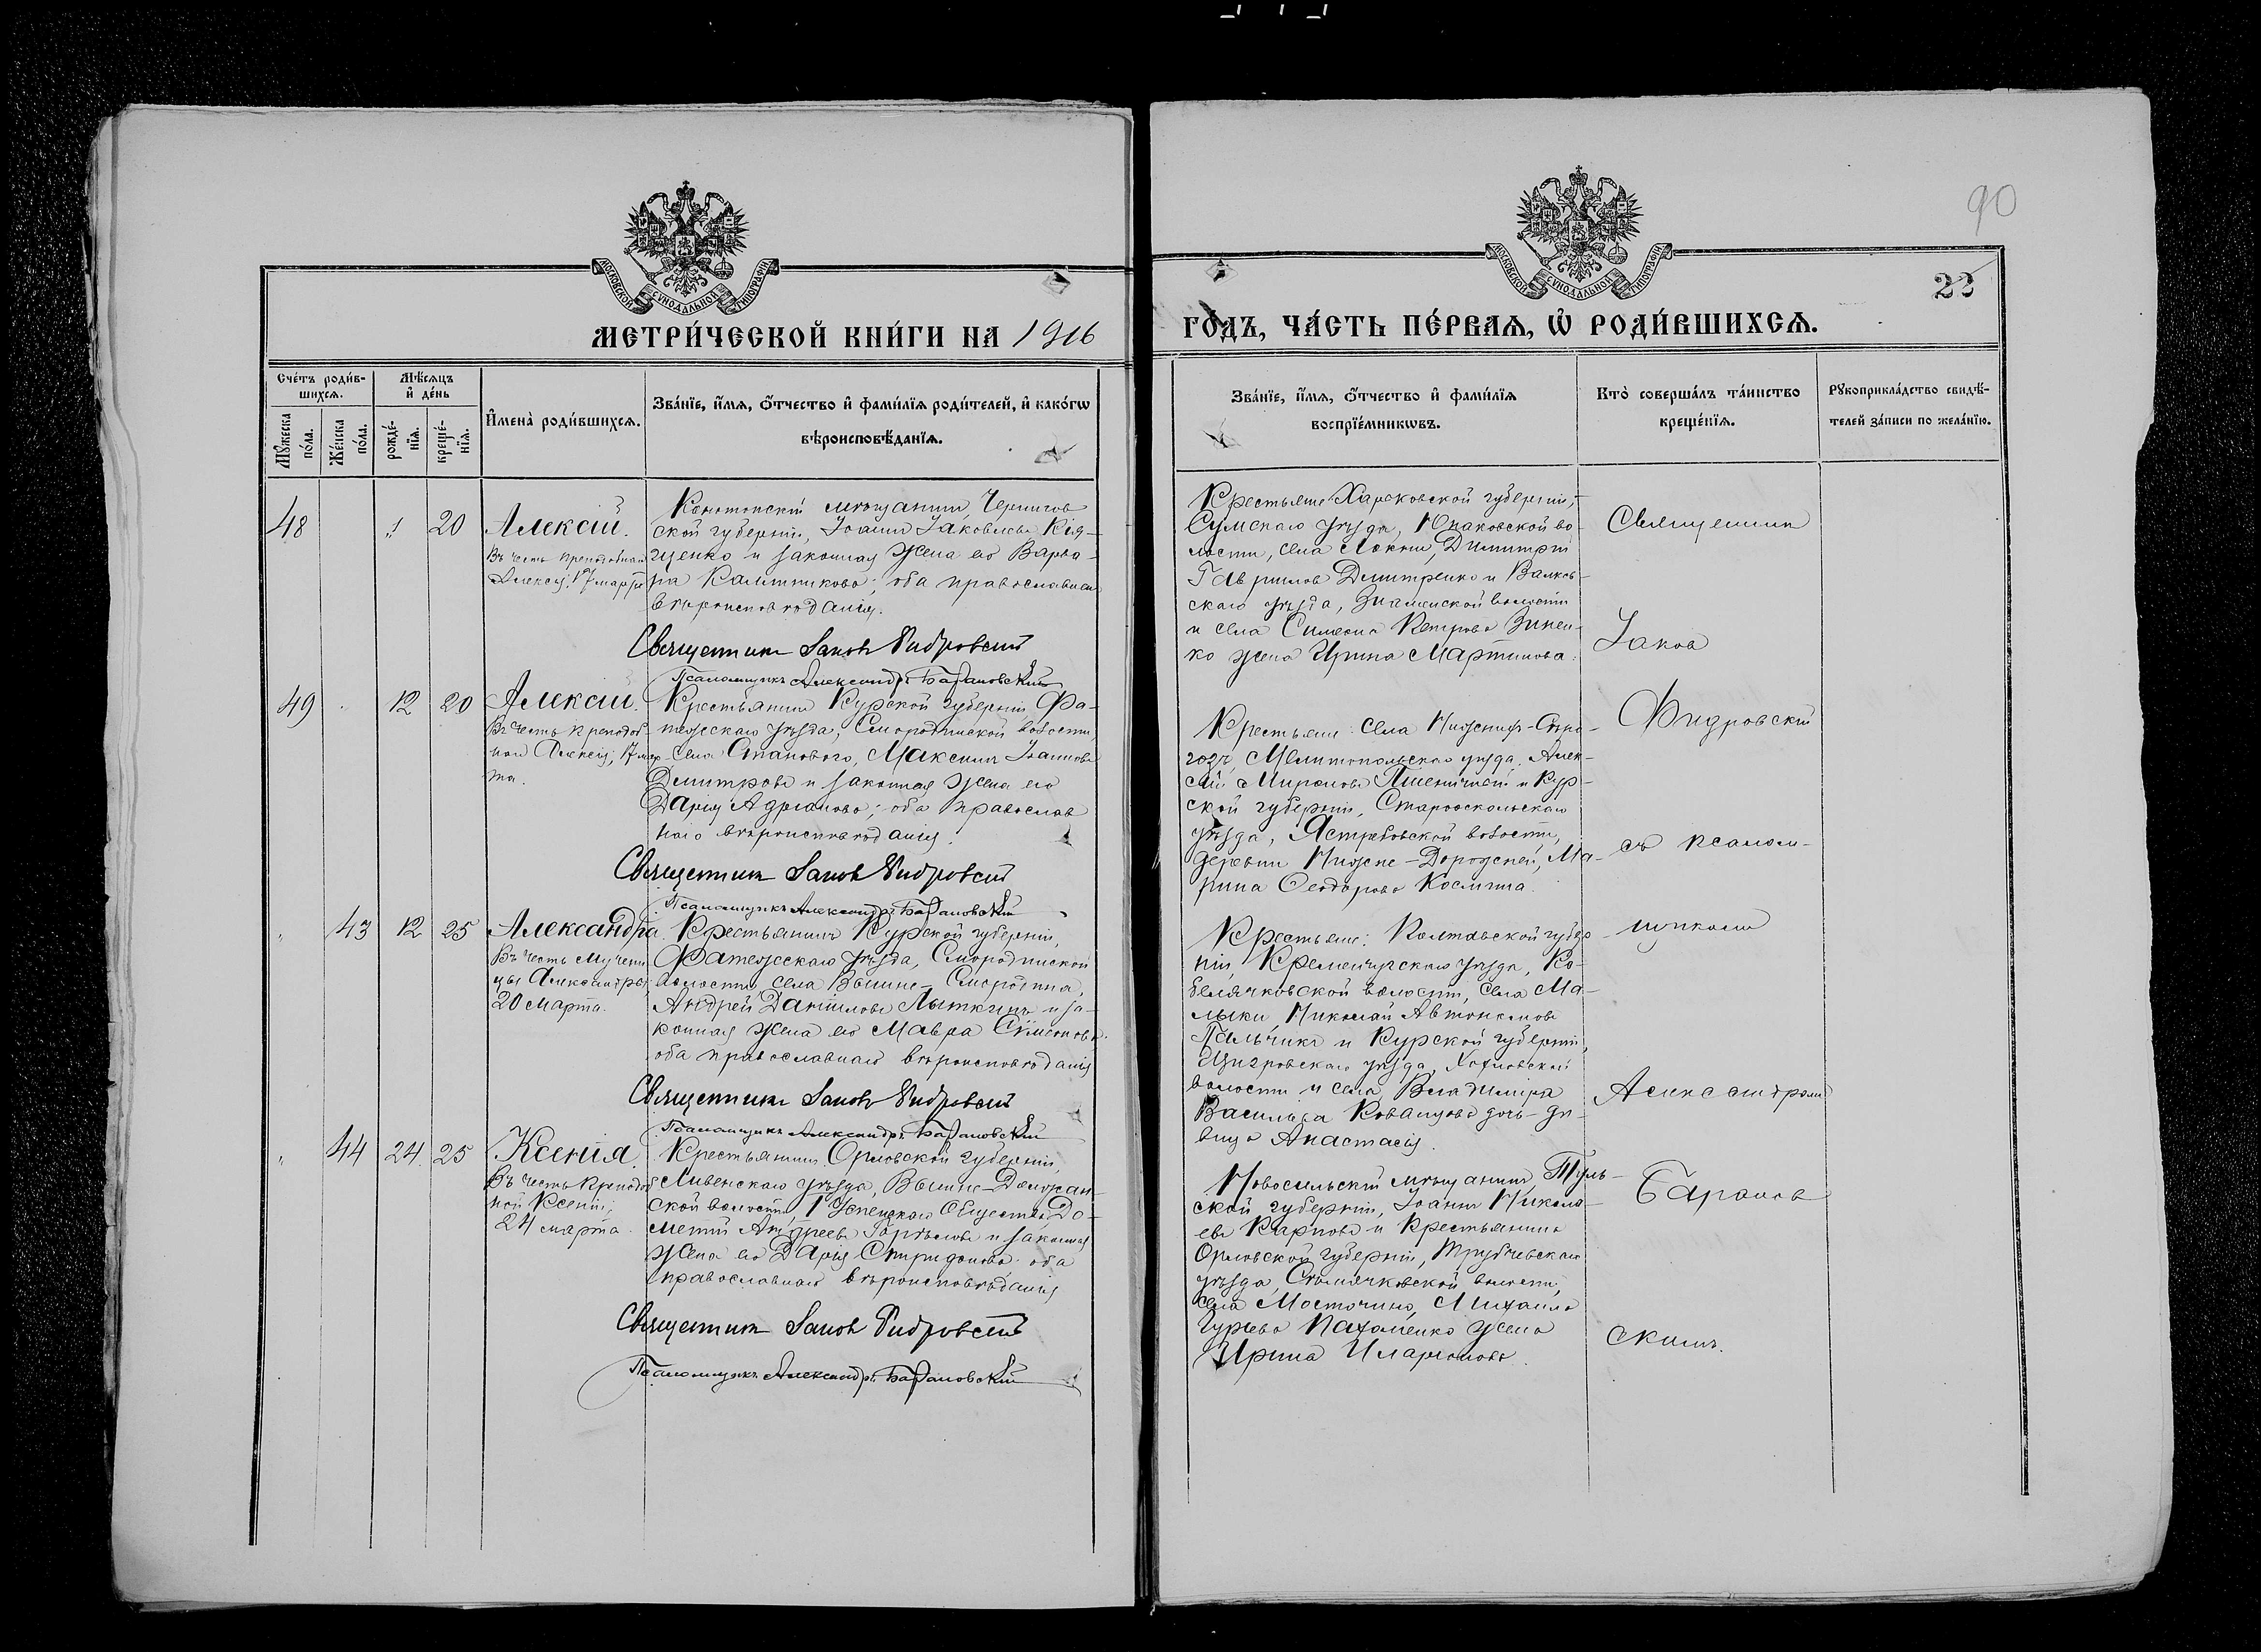 90
МОСКОВСКОЙ СѴНОДАЛЬНОЙ ТИПОГРАФІИ
МОСКОВСКОЙ СѴНОДАЛЬНОЙ ТИПОГРАФІИ
22
МЕТРИ́ЧЕСКОЙ КНИ́ГИ НА 1916
ГО́ДЪ, ЧА́СТЬ ПЕ́РВАѦ, Ѡ҆ РОДИ́ВШИХСѦ.
Сче́тъ роди́в-
шихсѧ.
Мꙋжеска по́ла.
Же́нска по́ла.
Мѣ́сѧцъ и҆ де́нь
рожде́-нїѧ.
креще́-нїѧ.
И҆мена̀ роди́вшихсѧ.
Зва́нїе, и҆́мѧ, ѻ҆́тчество и҆ фами́лїѧ роди́телей, и҆ како́гѡ
вѣроисповѣ́данїѧ.
Зва́нїе, и҆́мѧ, ѻ҆́тчество и҆ фами́лїѧ
воспрїе́мникѡвъ.
Кто̀ соверша́лъ та́инство
креще́нїѧ.
Рꙋкоприкла́дство свидѣ́-
телей за́писи по жела́нїю.
48 1 20 Алексій.
Въ честь преподобнаго
Алексія, 17 марта
Конотопскій мѣщанинъ, Чернигов
ской губерніи, Іоаннъ Іаковлевъ Кія-
щенко и законная жена его Варва-
ра Калинникова; оба православнаго
вѣроисповѣданія.
Священникъ Іаковъ Фидровскій
Псаломщикъ Александръ Барановскій
Крестьяне: Харьковской губерніи,
Сумскаго уѣзда, Юнаковской во-
лости, села Локни, Димитрій
Гавриловъ Дмитренко и Валков-
скаго уѣзда, Знаменской волости
и села Симеона Петрова Зинен-
ко жена Ирина Мартинова.
49 12 20 Алексій.
Въ честь преподоб-
наго Алексія, 17 мар-
та.
Крестьянинъ Курской губерніи Фа-
тежскаго уѣзда, Смородинской волости,
села Станового, Максимъ Іоанновъ
Дмитровъ и законная жена его
Дарія Адріанова; оба православ
наго вѣроисповѣданія.
Священникъ Іаковъ Фидровскій
Псаломщикъ Александръ Барановскій
Крестьяне: села Нижнихъ-Сѣро-
гозъ, Мелитопольскаго уѣзда, Алек-
сій Мироновъ Пшеничный и Кур-
ской губерніи, Старооскольскаго
уѣзда, Ястребовской волости,
деревни Нижне-Дорожней, Ма-
рина Ѳеодорова Косьмина.
43 12 25 Александра.
Въ честь мучени
цы Александры,
20 марта.
Крестьянинъ Курской губерніи,
Фатежскаго уѣзда, Смородинской
волости, села Выше-Смородина,
Андрей Даниловъ Лыткинъ и за-
конная жена его Мавра Симеонова
оба православнаго вѣроисповѣданія
Священникъ Іаковъ Фидровскій
Псаломщикъ Александръ Барановскій
Крестьяне: Полтавской губер-
ніи, Кременчугскаго уѣзда, Ко-
белячковской волости, села Ма-
лыки, Николай Автономовъ
Пальчикъ и Курской губерніи,
Щигровскаго уѣзда, Хохловской
волости и села Владиміра
Васильева Ковалцова дочь-дѣ-
вица Анастасія.
44 24 25 Ксенія.
Въ честь преподоб
ной Ксеніи,
24 марта.
Крестьянинъ Орловской губерніи,
Ливенскаго уѣзда, Выше-Должан-
ской волости, 1 Успенскаго Общества, До-
метій Андреевъ Горбылевъ и законная
жена его Дарія Спиридонова. оба
православнаго вѣроисповѣданія
Священникъ Іаковъ Фидровскій
Псаломщикъ Александръ Барановскій
Новосильскій мѣщанинъ, Туль-
ской губерніи, Іоаннъ Никола-
евъ Карповъ и крестьянина
Орловской губерніи, Трубчевскаго
уѣзда, Селиячковской волости,
села Мосточино, Михаила
Гурьева Пахоменко жена
Ирина Иларіонова.
Священникъ
Іаковъ
Фидровскій
съ псалом-
щикомъ
Александромъ
Баранов
скимъ.